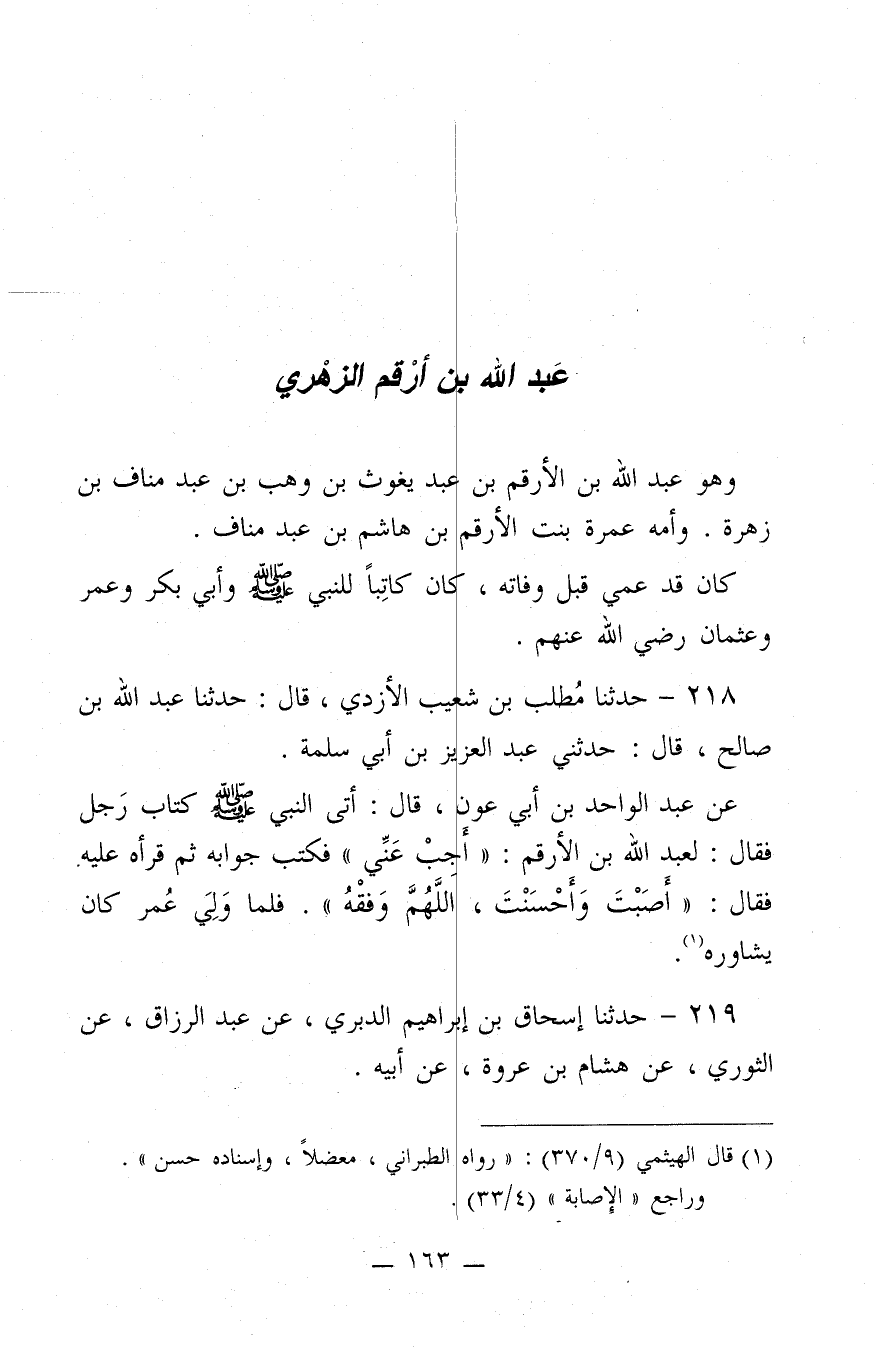 عَبد الله بن أرْقم الزهْري
وهو عبد الله بن الأرقم بن عبد يغوث بن وهب بن عبد مناف بن
زهرة . وأمه عمرة بنت الأرقم بن هاشم بن عبد مناف .
كان قد عمي قبل وفاته ، كان كاتِباً للنبي ﷺ وأبي بكر وعمر
وعثمان رضي الله عنهم .
٢١٨ – حدثنا مُطلب بن شعيب الأزدي ، قال : حدثنا عبد الله بن
صالح ، قال : حدثني عبد العزيز بن أبي سلمة .
عن عبد الواحد بن أبي عون ، قال : أتى النبي ﷺ كتاب رَجل
فقال : لعبد الله بن الأرقم : « أَجِبْ عَنِّي » فكتب جوابه ثم قرأه عليه
فقال : « أَصَبْتَ وَأَحْسَنْتَ ، اللَّهُمَّ وَفقْهُ » . فلما وَلِيَ عُمر كان
يشاوره(١).
٢١٩ – حدثنا إسحاق بن إبراهيم الدبري ، عن عبد الرزاق ، عن
الثوري ، عن هشام بن عروة ، عن أبيه .
(١) قال الهيثمي (٣٧٠/٩) : « رواه الطبراني ، معضلاً ، وإسناده حسن » .
وراجع « الإصابة » (٣٣/٤) .
— ١٦٣ —